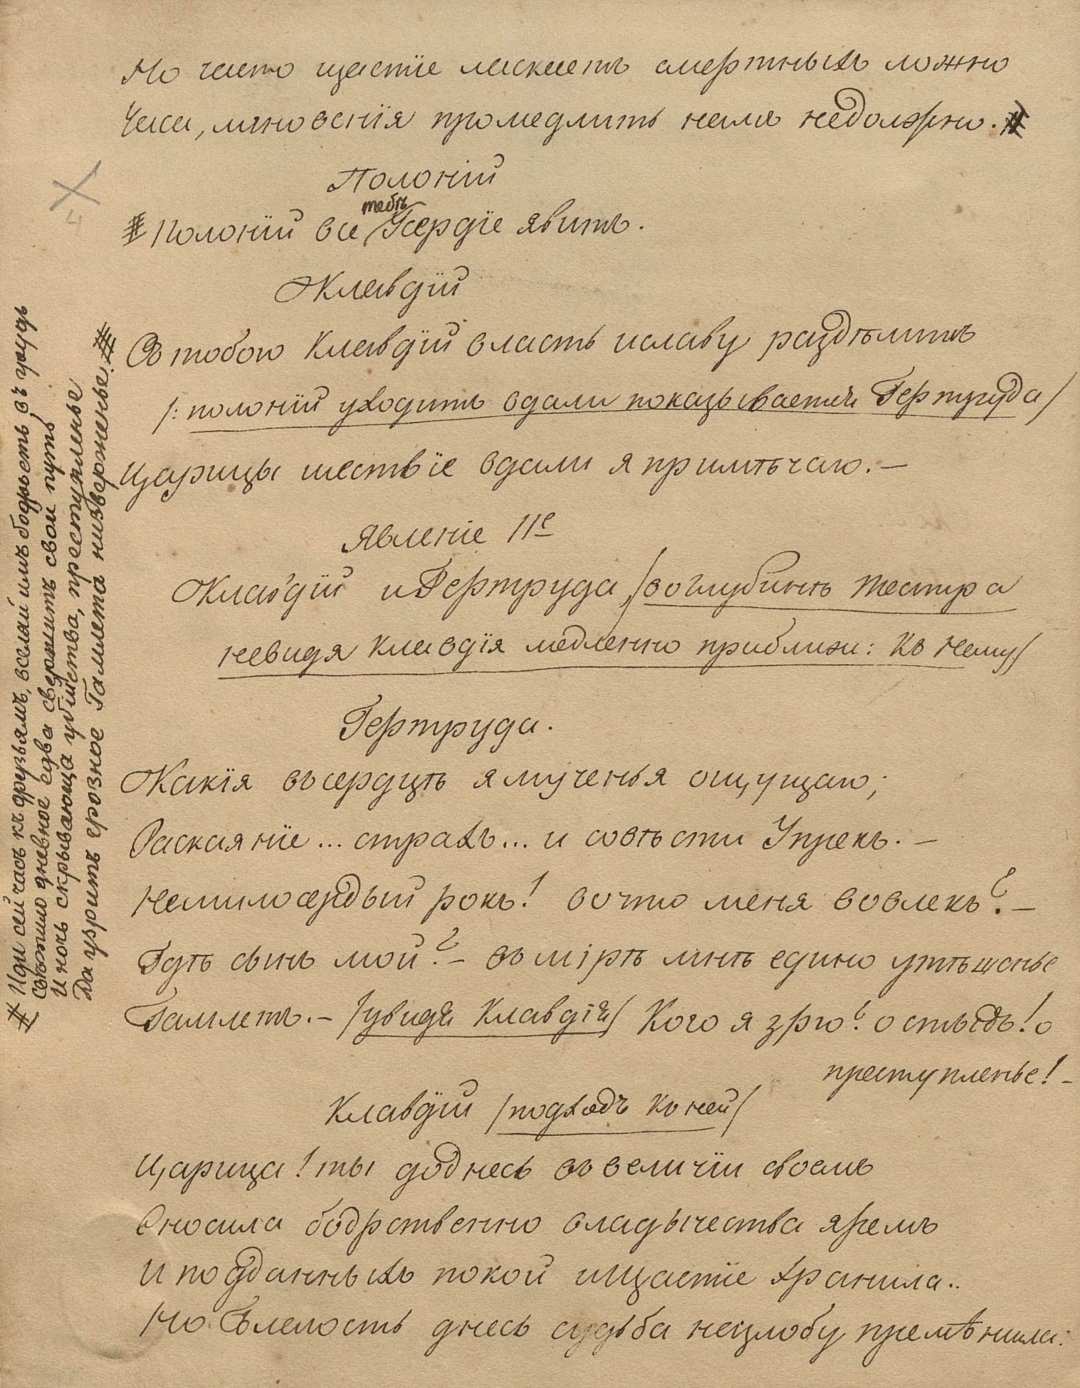 Но часто щастїе ласкаетъ смертныхъ ложно
Часа, мгновенїя промедлить намъ недолжно. #
Полонїй
тебѣ
# Полонїй все Усердїе явитъ.
Клавдїй
Съ тобою Клавдїй власть иславу раздѣлитъ
/: полонїй уходитъ вдали показывается Гертруда/
Царицы шествїе вдали я примѣчаю. —
Явленїе IIе
Клавдїй и Гертруда /во глубинѣ театра
невидя клавдїя медленно приближ: къ нему/
Гертруда.
Какїя въ сердцѣ я мученья ощущаю;
Раскаянїе ... страхъ ... и совѣсти Упрекъ. —
Немилосердый рокъ! во что меня вовлекъ? —
Гдѣ сынъ мой? — въ мїрѣ мнѣ едино утѣшенье
Гамлетъ. — /увидя Клавдїя/ Кого я зрю? о стыдъ! о
преступленье! —
Клавдїй /подходъ къ ней/
Царица! ты доднесь въ величїи своемъ
Сносила бодрственно владычества яремъ
И подданныхъ покой ищастїе хранила..
Но днесь судьба незлобу премѣнила:
# Иди сей часъ къ друзьямъ, вселяй имъ бодрость въ грудь
Свѣтило дневное едва свершитъ свой путь
И ночь скрывающа убїйства, преступленье
Да узритъ грозное Гамлета низверженье. #
4